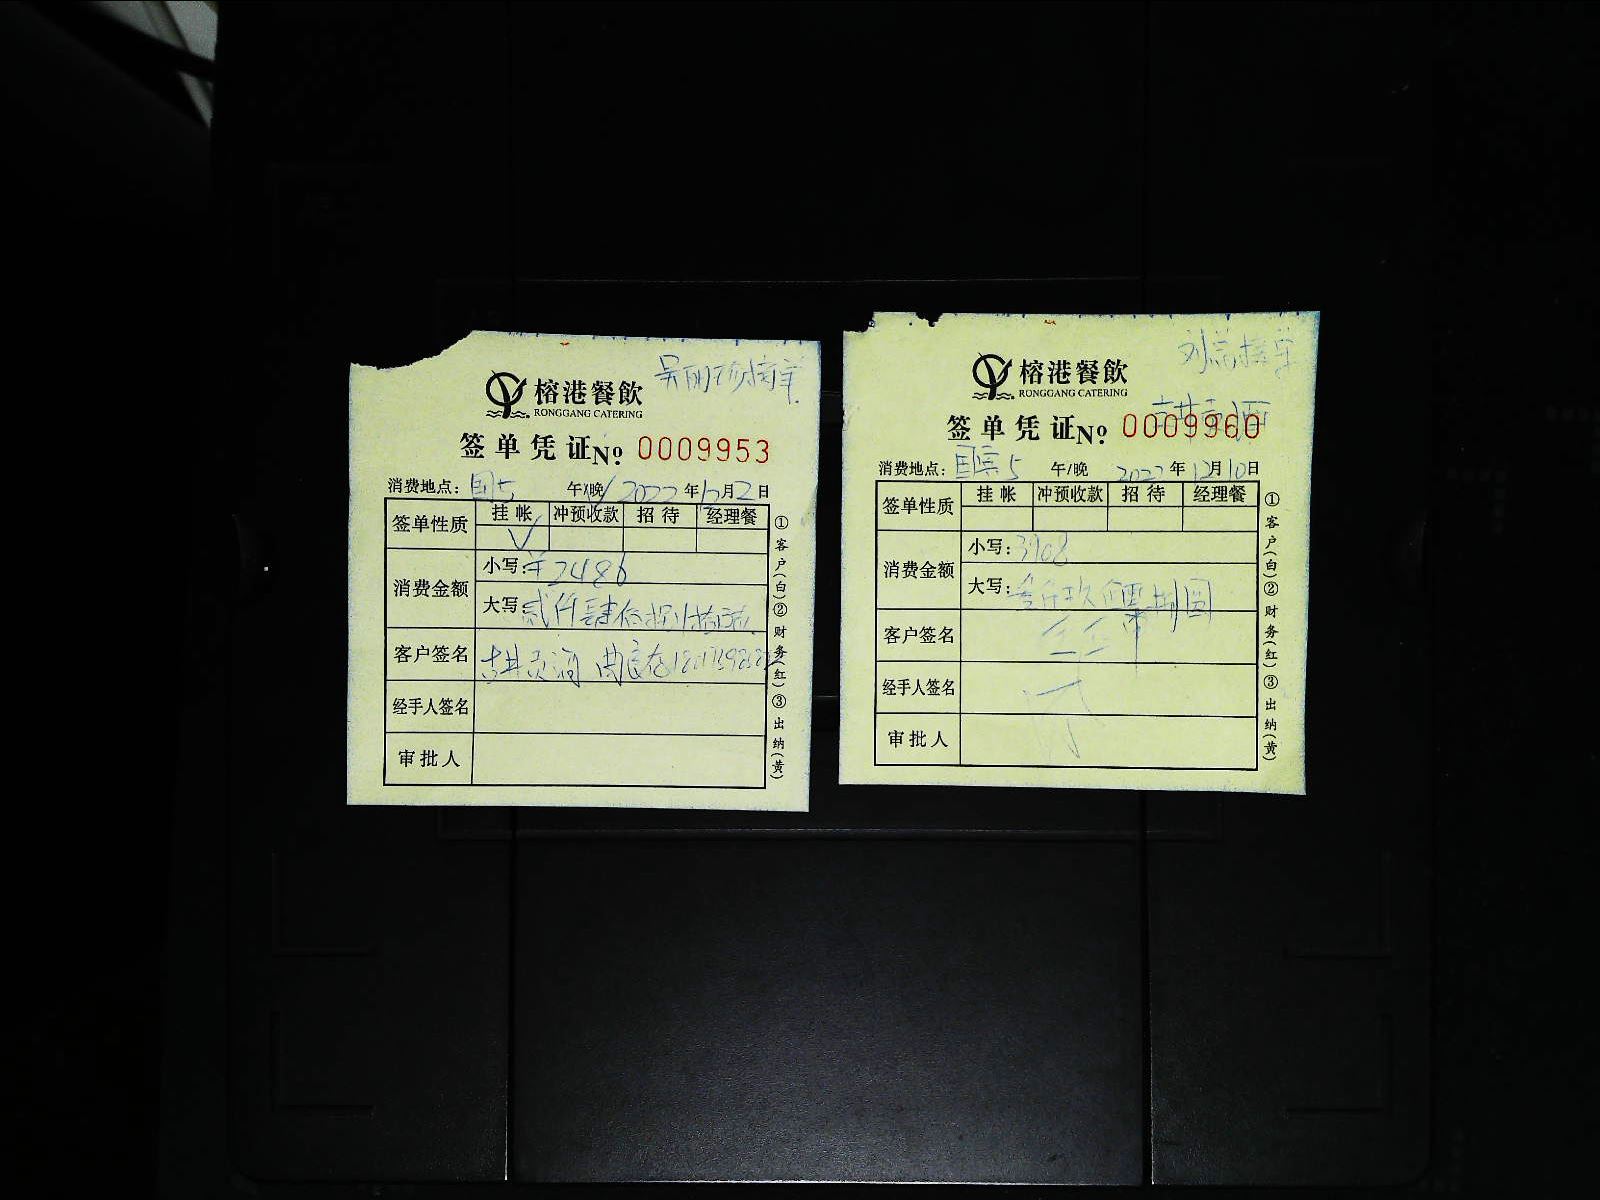 榕港餐飲
RONGGANG CATERING
签单凭证 No. 0009953
消费地点: 国5 午/晚 2022年12月2日
签单性质 挂帐 冲预收款 招待 经理餐
√
消费金额 小写: ¥2486
大写: 贰仟肆佰捌拾陆
客户签名 古井贡酒
经手人签名
审批人
①客户(白)②财务(红)③出纳(黄)
榕港餐飲
RONGGANG CATERING
古井贡酒
签单凭证 No. 0009960
消费地点: 国宾5 午/晚 2022年12月10日
签单性质 挂帐 冲预收款 招待 经理餐
消费金额 小写: 3908
大写: 叁仟玖佰零捌圆
客户签名
经手人签名
审批人
①客户(白)②财务(红)③出纳(黄)